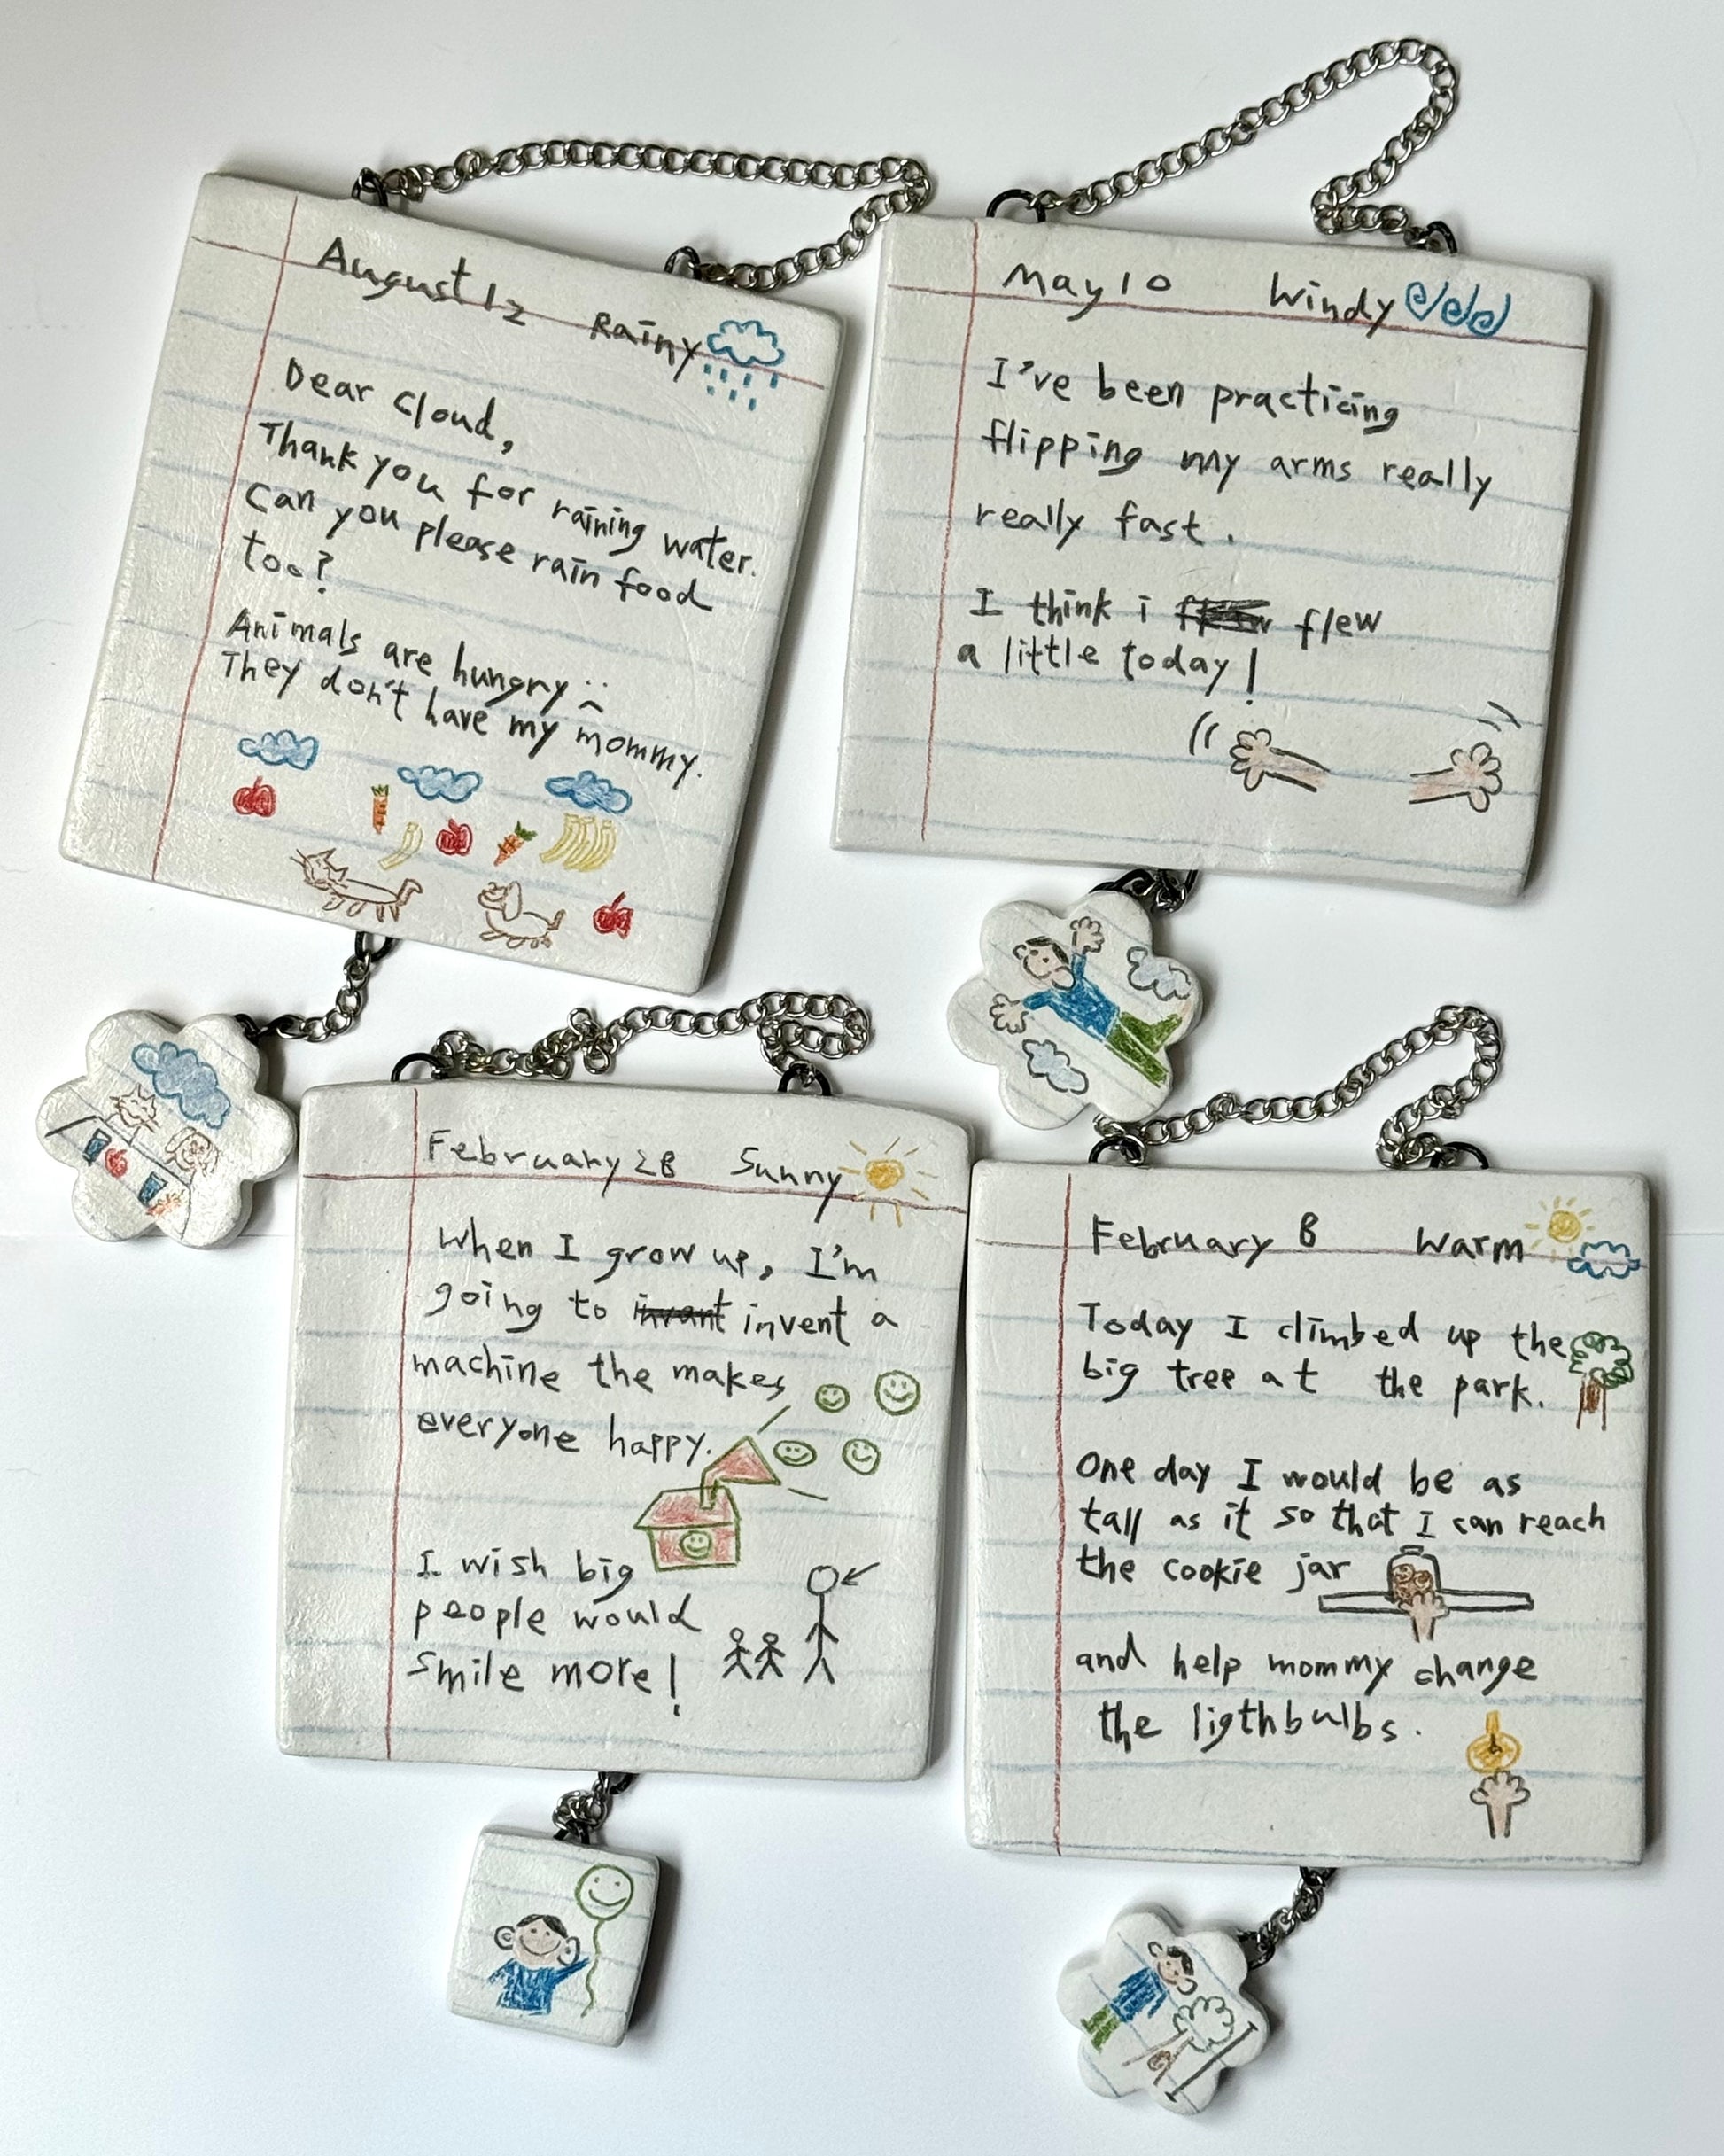 August 12 Rainy
Dear Cloud,
Thank you for raining water.
Can you please rain food
too?
Animals are hungry
They don't have my mommy.
May 10 Windy
I've been practicing
flipping my arms really
really fast.
I think i flew
a little today!
February 28 Sunny
When I grow up, I'm
going to invant invent a
machine the makes
everyone happy.
I wish big
people would
smile more!
February 8 Warm
Today I climbed up the
big tree at the park.
One day I would be as
tall as it so that I can reach
the cookie jar
and help mommy change
the ligthbulbs.